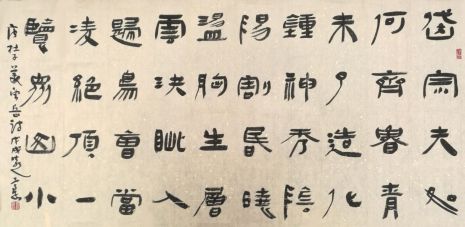 岱宗夫如
何齊魯青
未了造化
鍾神秀陰
陽割昏曉
盪胸生層
雲決眦入
歸鳥會當
凌絕頂一
覽衆山小
杜甫望岳詩戊戌